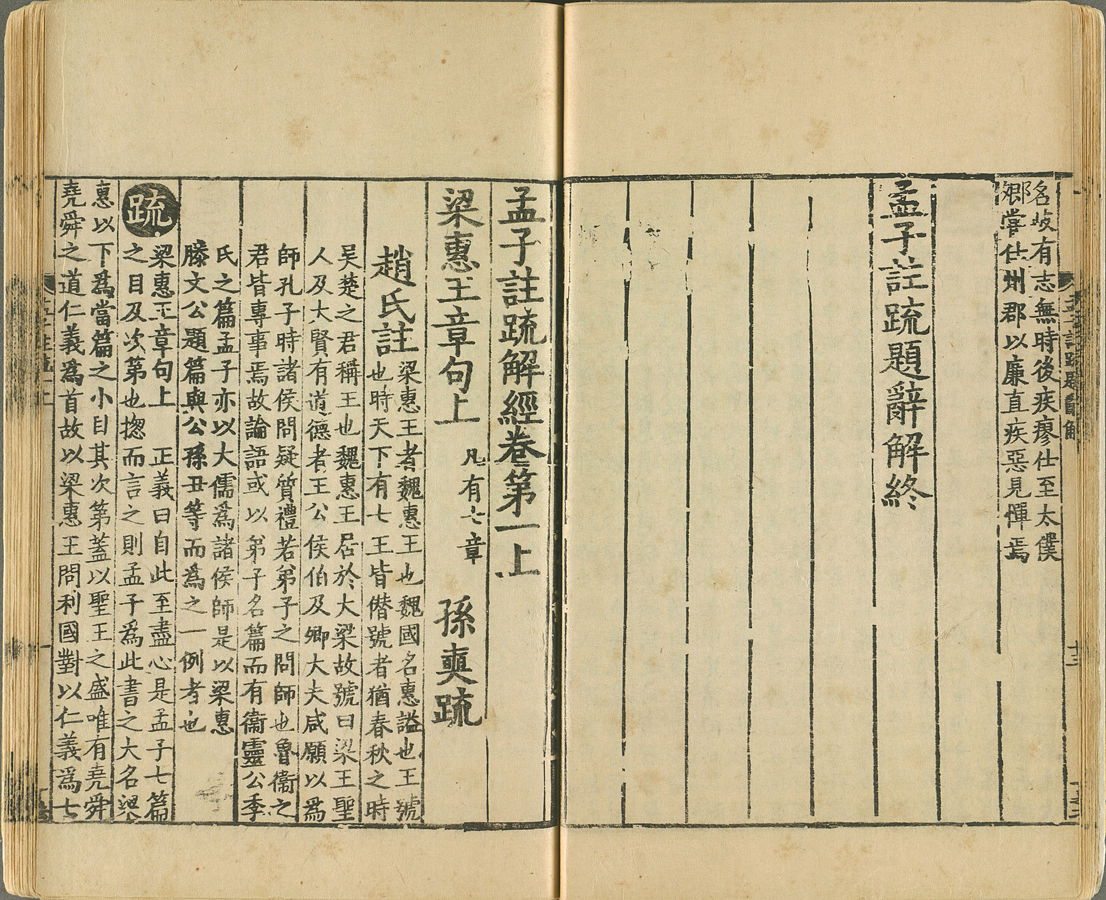 名岐有志無時後疾瘳仕至太僕
卿嘗仕州郡以廉直疾惡見憚焉
孟子註疏題辭解終
孟子註疏解經卷第一上
梁惠王章句上 凡有七章 孫奭疏
趙氏註
梁惠王者魏惠王也魏國名惠謚也王號
也時天下有七王皆僭號者猶春秋之時
吴楚之君稱王也魏惠王居於大梁故號曰梁王聖
人及大賢有道德者王公侯伯及卿大夫咸願以為
師孔子時諸侯問疑質禮若弟子之問師也魯衞之
君皆專事焉故論語或以弟子名篇而有衞靈公季
氏之篇孟子亦以大儒為諸侯師是以梁惠
滕文公題篇與公孫丑等而為之一例者也
疏
梁惠王章句上 正義曰自此至盡心是孟子七篇
之目及次第也揔而言之則孟子為此書之大名梁
惠以下為當篇之小目其次第蓋以聖王之盛唯有堯舜
堯舜之道仁義為首故以梁惠王問利國對以仁義為七